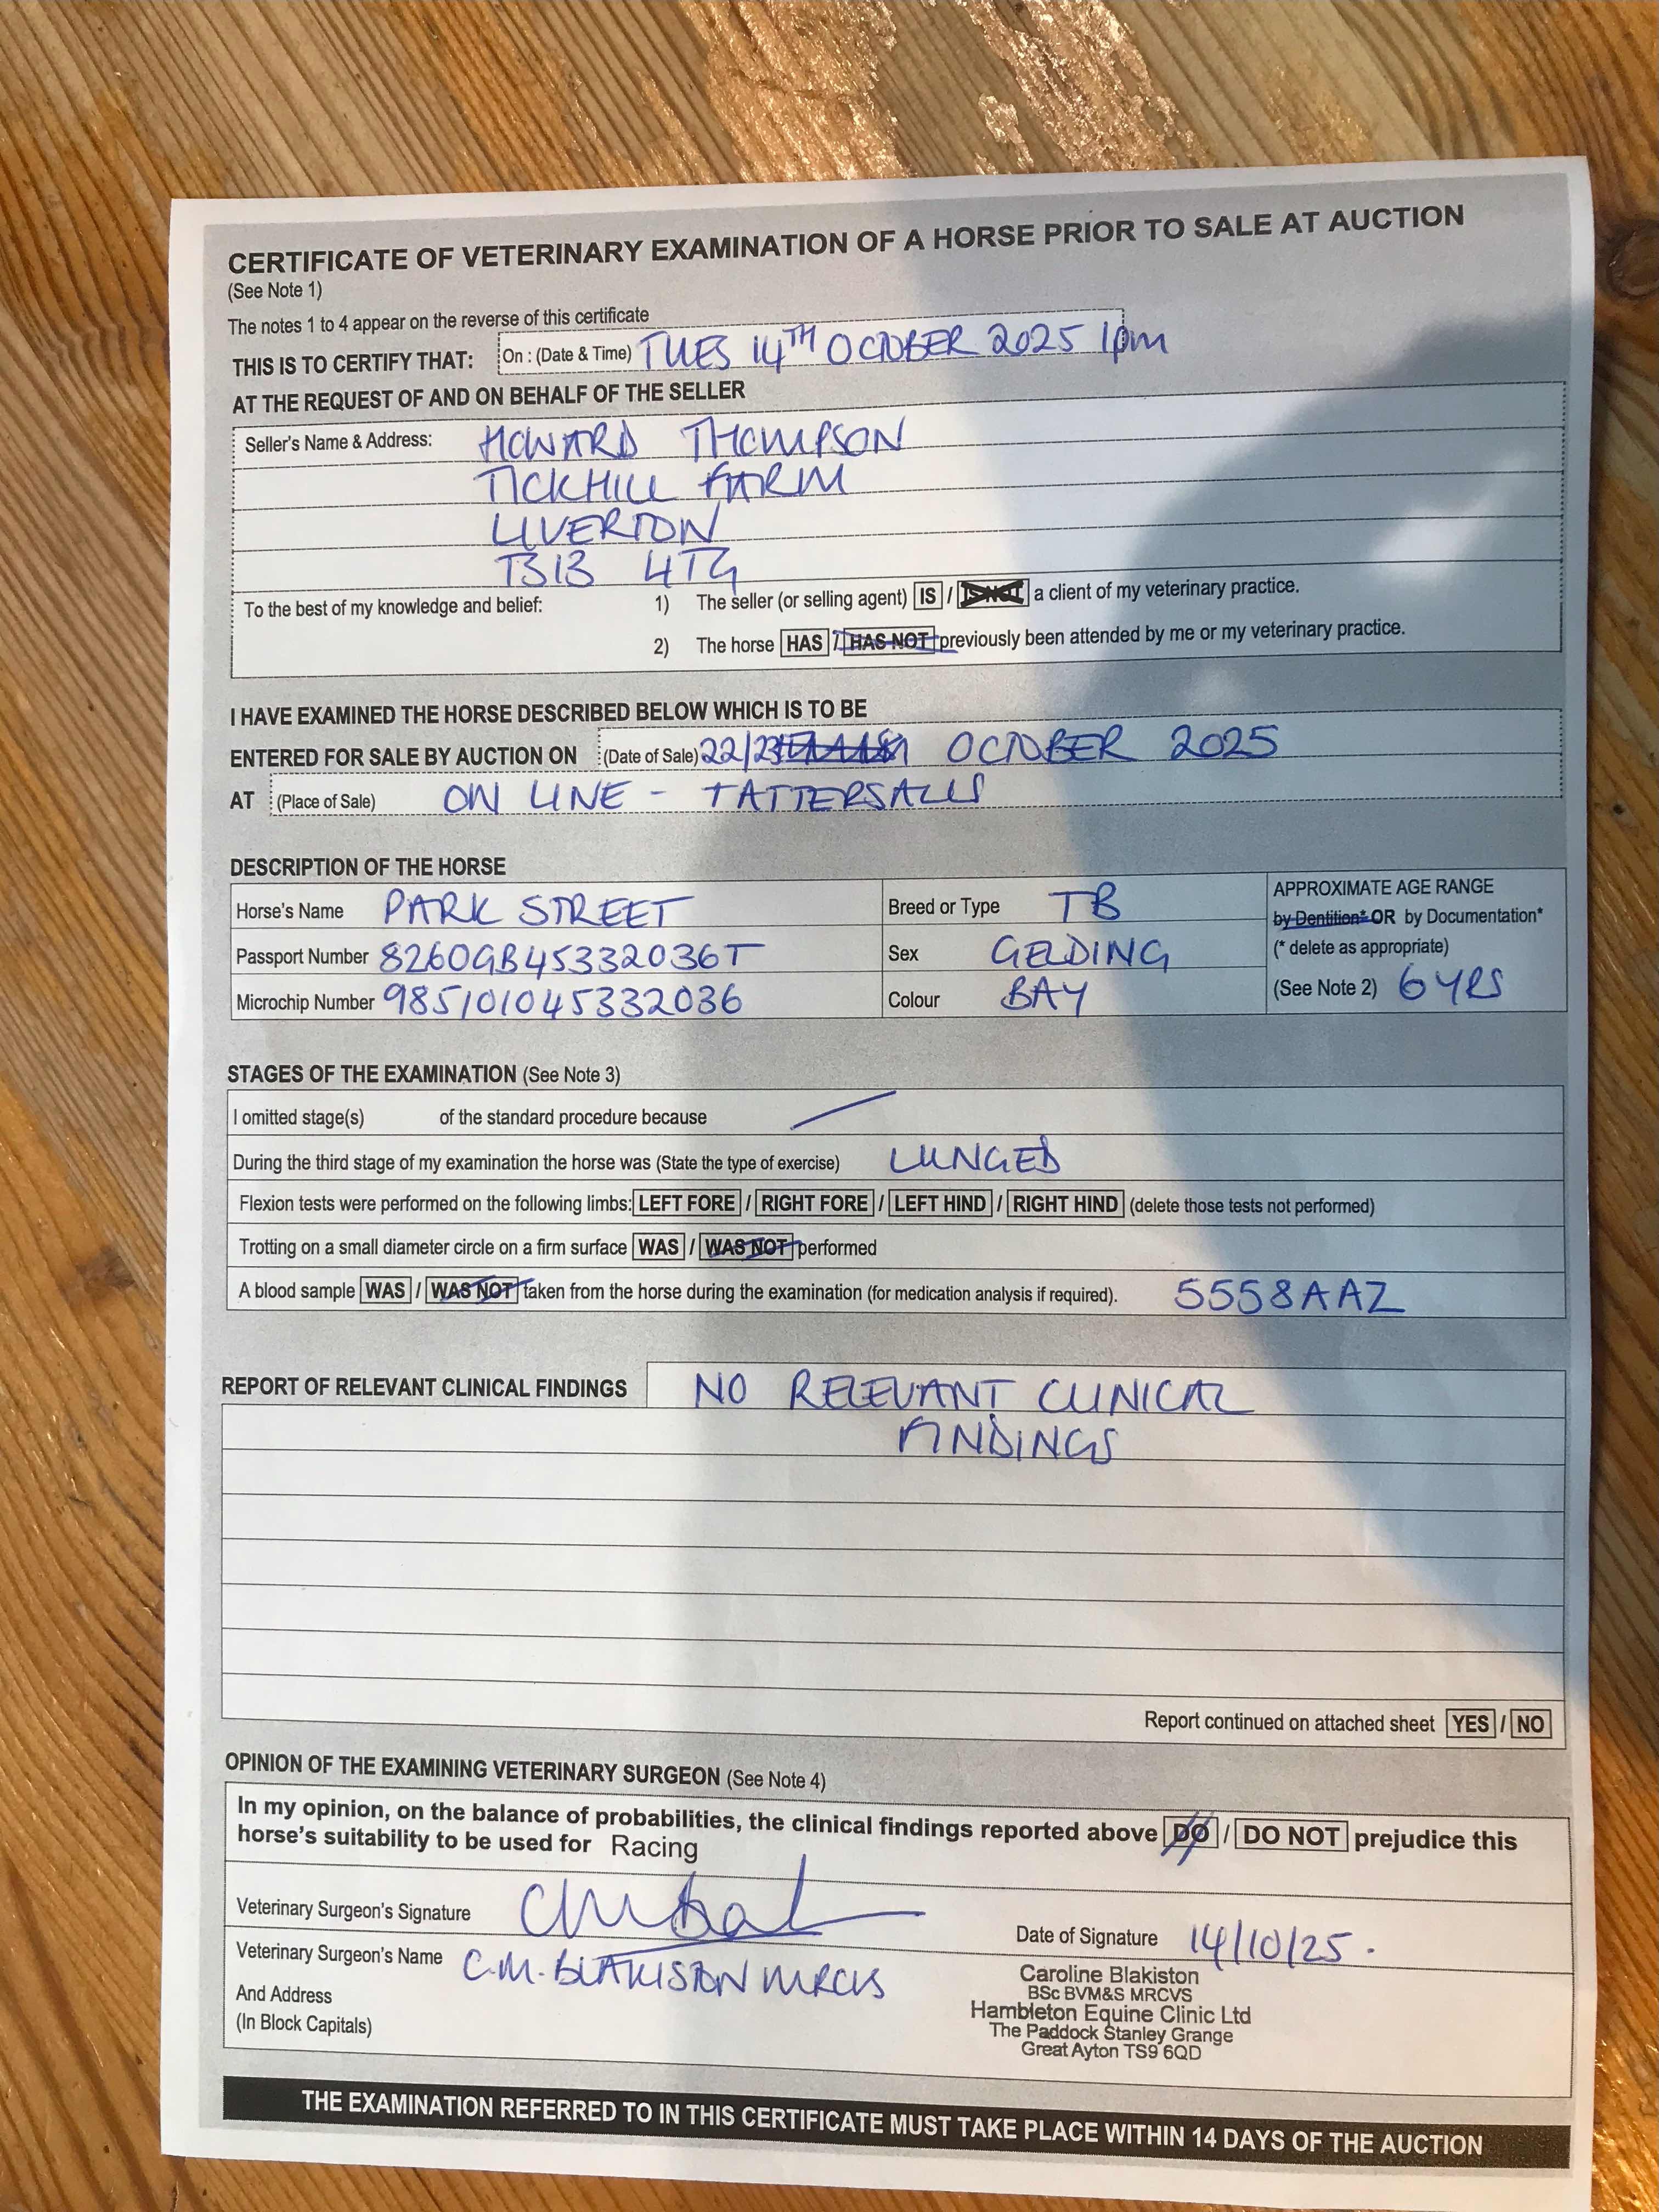 CERTIFICATE OF VETERINARY EXAMINATION OF A HORSE PRIOR TO SALE AT AUCTION
(See Note 1)
The notes 1 to 4 appear on the reverse of this certificate
THIS IS TO CERTIFY THAT: On : (Date & Time) TUES 14TH OCTOBER 2025 1pm
AT THE REQUEST OF AND ON BEHALF OF THE SELLER
Seller's Name & Address: HOWARD THOMPSON
TICKHILL FARM
LIVERTON
TS13 4TG
To the best of my knowledge and belief: 1) The seller (or selling agent) IS / IS NOT a client of my veterinary practice.
2) The horse HAS / HAS NOT previously been attended by me or my veterinary practice.
I HAVE EXAMINED THE HORSE DESCRIBED BELOW WHICH IS TO BE
ENTERED FOR SALE BY AUCTION ON (Date of Sale) 22/23 OCTOBER 2025
AT (Place of Sale) ON LINE - TATTERSALLS
DESCRIPTION OF THE HORSE
Horse's Name PARK STREET Breed or Type TB APPROXIMATE AGE RANGE
by Dentition* OR by Documentation*
Passport Number 8260GB45332036T Sex GELDING (* delete as appropriate)
Microchip Number 985101045332036 Colour BAY (See Note 2) 6 YRS
STAGES OF THE EXAMINATION (See Note 3)
I omitted stage(s) of the standard procedure because
During the third stage of my examination the horse was (State the type of exercise) LUNGED
Flexion tests were performed on the following limbs: LEFT FORE / RIGHT FORE / LEFT HIND / RIGHT HIND (delete those tests not performed)
Trotting on a small diameter circle on a firm surface WAS / WAS NOT performed
A blood sample WAS / WAS NOT taken from the horse during the examination (for medication analysis if required). 5558AAZ
REPORT OF RELEVANT CLINICAL FINDINGS NO RELEVANT CLINICAL
FINDINGS
Report continued on attached sheet YES / NO
OPINION OF THE EXAMINING VETERINARY SURGEON (See Note 4)
In my opinion, on the balance of probabilities, the clinical findings reported above DO / DO NOT prejudice this
horse's suitability to be used for Racing
Veterinary Surgeon's Signature
Date of Signature 14/10/25.
Veterinary Surgeon's Name C.M. BLAKISTON MRCVS
And Address
(In Block Capitals)
Caroline Blakiston
BSc BVM&S MRCVS
Hambleton Equine Clinic Ltd
The Paddock Stanley Grange
Great Ayton TS9 6QD
THE EXAMINATION REFERRED TO IN THIS CERTIFICATE MUST TAKE PLACE WITHIN 14 DAYS OF THE AUCTION